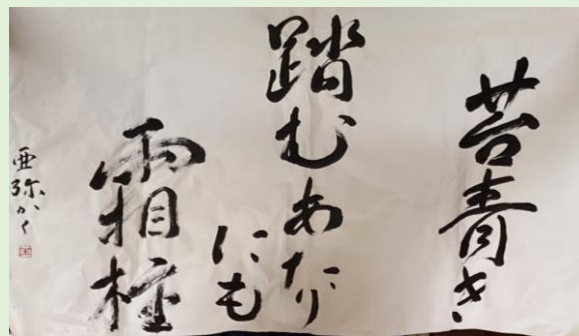 苔青き
踏むあたり
にも
霜柱
亜弥かく